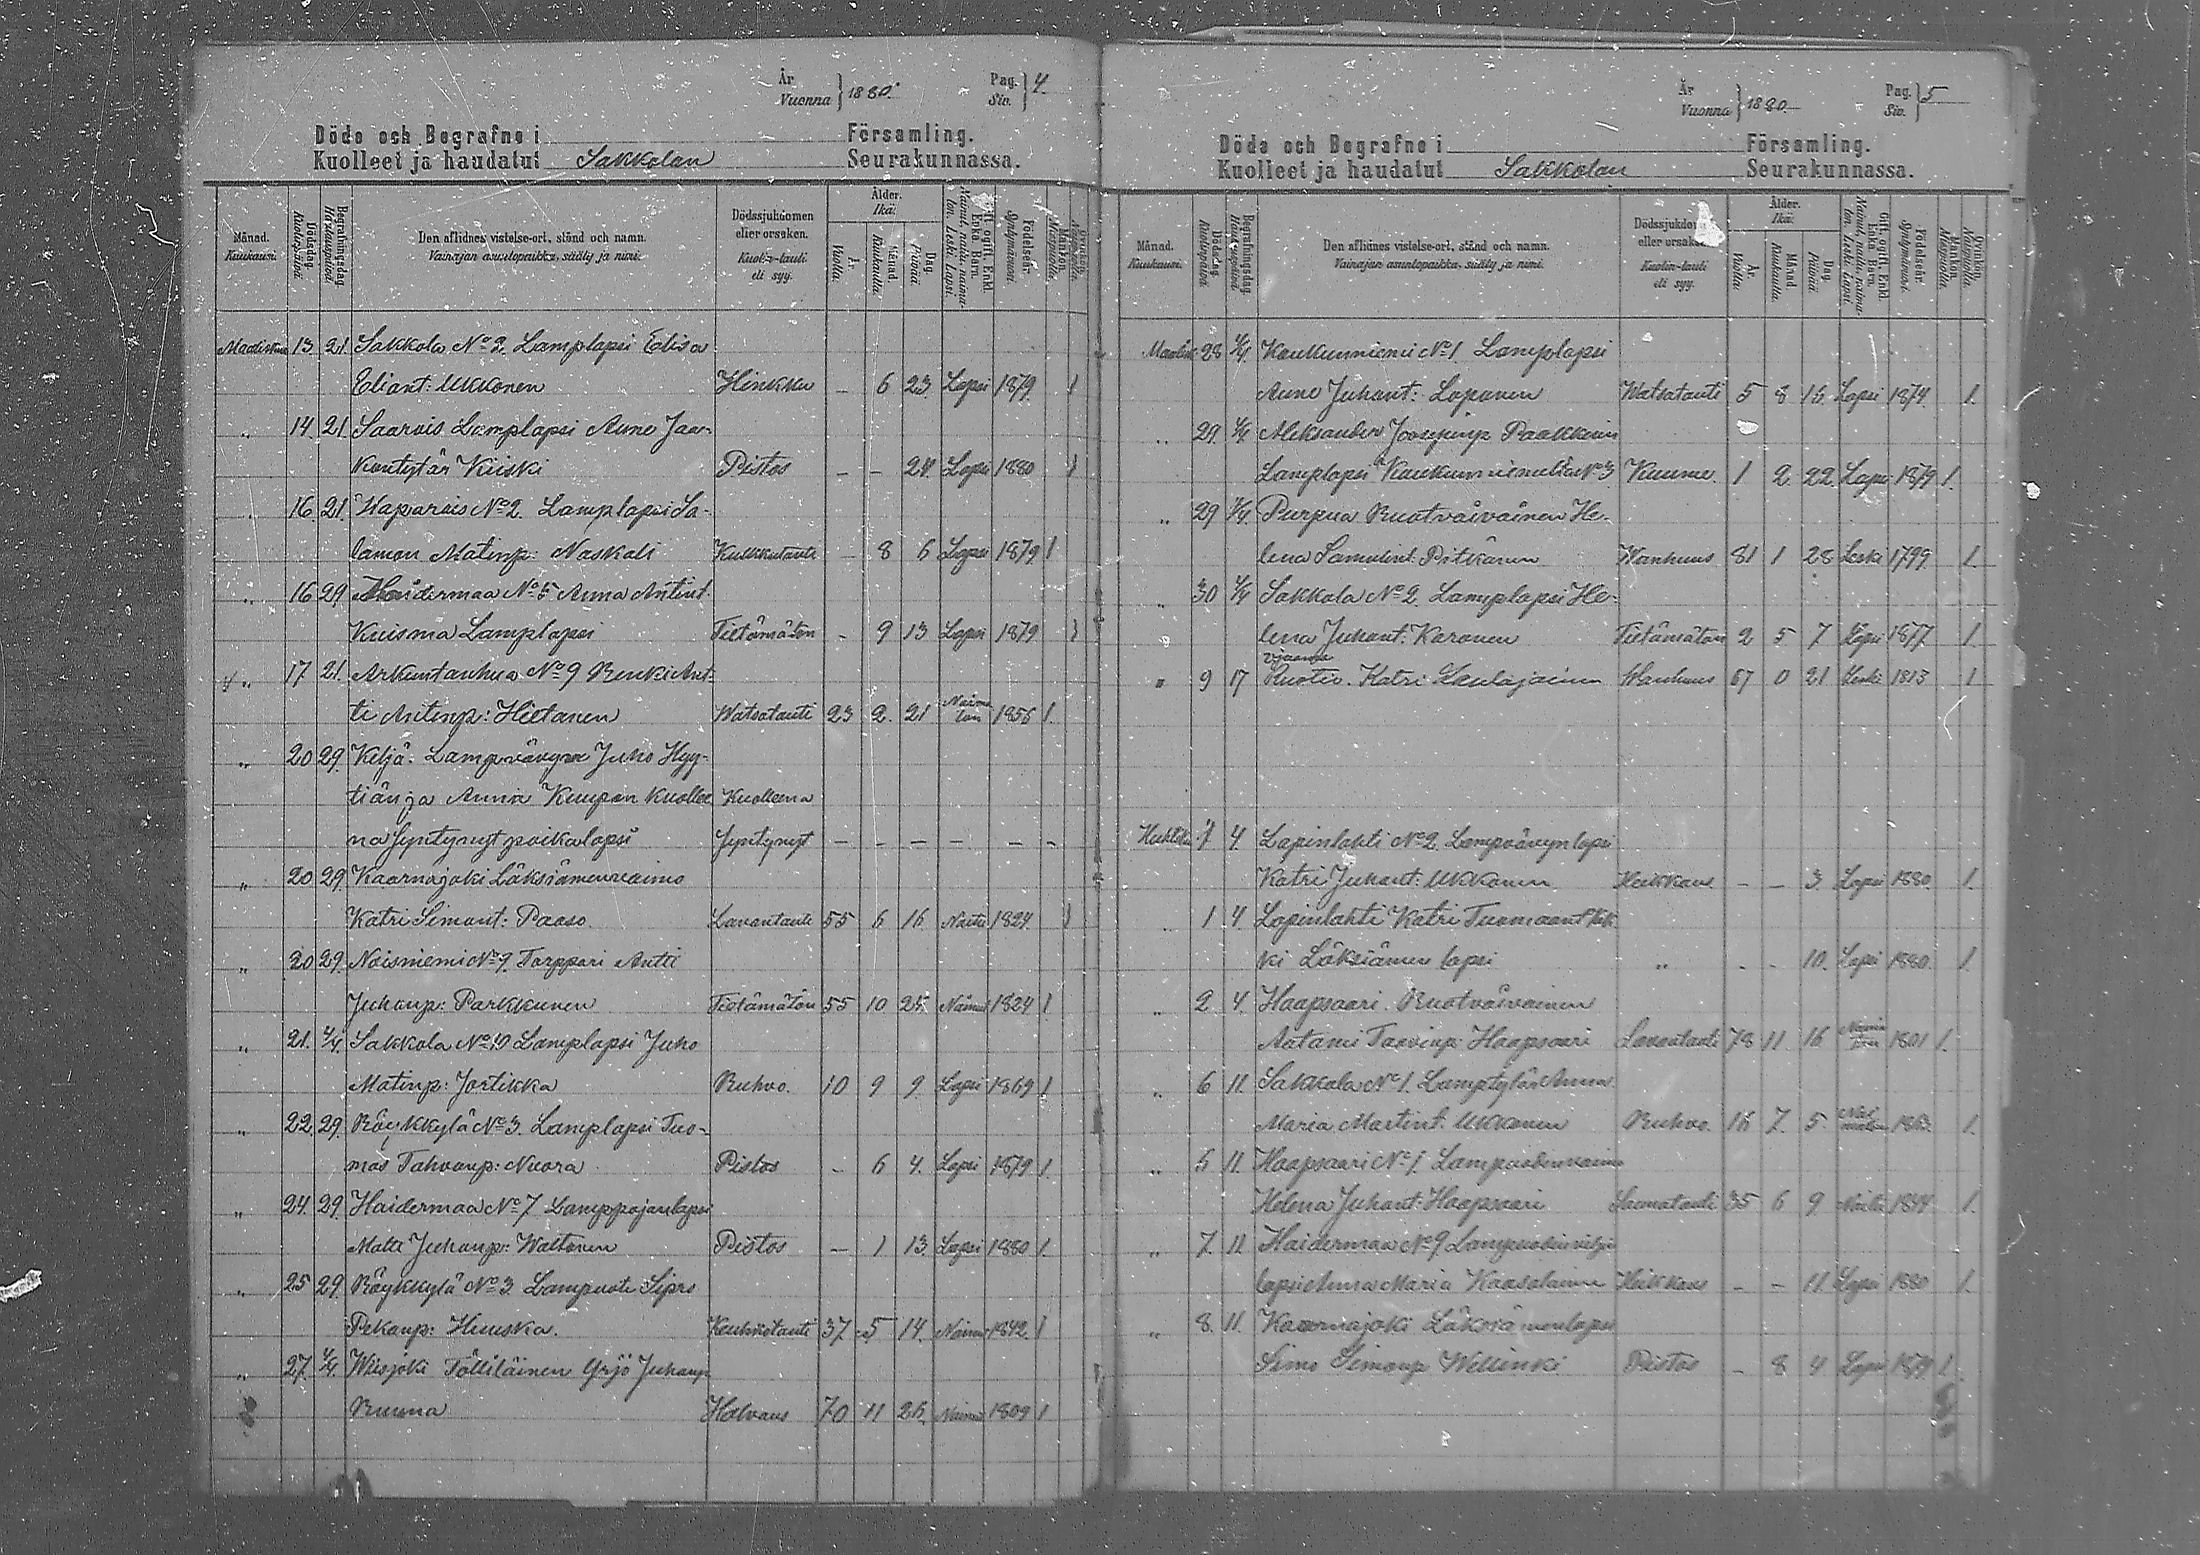 År
Vuonna } 1880.
Pag.
Siv. } 4
Döde och Begrafne i Församling.
Kuolleet ja haudatut Sakkolan Seurakunnassa.
Månad.
Kuukausi.
Dödsdag.
Kuolinpäivä.
Begrafningsdag
Hautauspäivä.
Den aflidnes vistelse-ort, stånd och namn.
Vainajan asuntopaikka, sääty ja nimi.
Dödssjukdomen
eller orsaken.
Kuolin-tauti
eli syy.
Ålder.
Ikä.
År.
Vuotta.
Månad.
Kuukautta.
Dag.
Päivää.
Gift, ogift, Enkl.
Enka, Barn.
Nainut, naitu, naima-
ton, Leski, Lapsi.
Födelseår.
Syntymävuosi.
Mankön.
Miespuolia.
Qvinkön.
Naispuolia.
Maalisku 13 21 Sakkola No 2. Lamplapsi Elisa
Eliant: Ukkonen Hinkku – 6 23 Lapsi 1879 1
„ 14 21 Saarois Lamplapsi Anne Jaa-
kontytär Kiiski Pistos – – 24 Lapsi 1880 1
„ 16 21 Haparais No 2. Lamplapsi Sa-
lamon Matinp: Naskali Kurkkutauti – 8 6 Lapsi 1879 1
„ 16 29 Haidermaa No 5 Anna Antint.
Kuisma Lamplapsi Tietämätön – 9 13 Lapsi 1879 1
„ 17 21 Arkuntanhua No 9 Renki Ant-
ti Antinp: Hietanen Watsatauti 23 2 21 Naima
ton 1856 1.
„ 20 29. Keljä. Lampvävyn Juho Hyy-
tiän ja Annia Kuupan kuollee Kuolleena
na syntynyt poikalapsi Syntynyt – – – – – –
„ 20 29. Kaarnajoki Läksiämenvaimo
Katri Simont: Paaso. Lavantauti 55 6 16 Naitu 1824 1
„ 20 29. Noisniemi No 9. Torppari Antti
Juhanp: Parkkunen Tietämätön 55 10 25. Nainut 1824 1.
„ 21. 4/4. Sakkola No 10 Lamplapsi Juho
Matinp: Jortikka Ruhvo. 10 9 9 Lapsi 1869 1
„ 22. 29. Röykkylä No 3. Lamplapsi Tuo-
mas Tahvanp: Nuora Pistos – 6 4. Lapsi 1879 1.
„ 24. 29. Haidermaa No 7 Lamppojanlapsi
Matti Juhanp: Waltonen Pistos – 1 13 Lapsi 1880 1.
„ 25 29. Röykkylä No 3. Lampuoti Sipro
Pekanp: Huuska. Keuhkotauti 37 5 14. Nainu 1842. 1
„ 27. 4/4. Wiisjoki Tölliläinen Yrjö Juhanp
Ruuna Halvaus 70 11 26. Nainu 1809 1
År
Vuonna } 1880.
Pag.
Siv. } 5
Döde och Begrafne i Församling.
Kuolleet ja haudatut Sakkolan Seurakunnassa.
Månad.
Kuukausi.
Dödsdag
Kuolinpäivä.
Begrafningsdag.
Hautauspäivä.
Den aflidnes vistelse-ort, stånd och namn.
Vainajan asuntopaikka, sääty ja nimi.
Dödssjukdo
eller orsake
Kuolin-tauti
eli syy.
Ålder.
Ikä.
År.
Vuotta.
Månad
Kuukautta.
Dag
Päivää.
Gift, ogift, Enkl.
Enka, Barn.
Nainut, naitu, naima-
ton, Leski, Lapsi.
Födelseår.
Syntymävuosi.
Mankön.
Miespuolia.
Qvinkön.
Naispuolia.
Maalisk 28 4/4. Kaukunniemi No 1. Lamplapsi
Anne Juhant: Loponen Watsatauti 5 8 15 Lapsi 1874. 1.
„ 29. 4/4 Aleksander Joosepinp Paakkinen
Lamplapsi No 3 Kuume. 1 2 22 Lapsi 1879 1.
„ 29 4/4. Purpua Ruotvaivainen He-
lena Samulint. Pitkänen Wanhuus 81 1 28 Leski 1799 1.
„ 30 4/4 Sakkola No 2. Lamplapsi He-
lena Juhant: Karonen Tietämätön 2 5 7 Lapsi 1877. 1.
„ 9 17 Ruotiv. Katri Laulajainen Wanhuus 67 0 21 Leski 1813 1
Huhtiku 1 4. Lapinlahti No 2. Lampvävynlapsi
Katri Juhant: Ukkonen Heikkous – – 3. Lapsi 1880. 1.
„ 1 4. Lapinlahti Katri Tuomaant
ki Läksiämen lapsi „ – – 10. Lapsi 1880. 1.
„ 2 4. Haapsaari. Ruotvaivainen
Aatami Taavinp: Haapsaari Lavantauti 78 11 16 Naima
ton 1801 1.
„ 6 11. Sakkola No 1. Lamptytär Anna
Maria Martint: Ukkonen Ruhvo. 16 7. 5. 1863. 1.
„ 5 11. Haapsaari No 1. Lampuodinvaimo
Helena Juhant: Haapsaari 35 6 9 Naitu 1844. 1.
„ 7. 11. Haidermaa No 9
lapsi Anna Maria Kaasalainen Heikkous – – 11. Lapsi 1880 1.
„ 8. 11. Kaarnajoki Läksiämenlapsi
Simo Simonp Wellinki Pistos – 8 4 Lapsi 1879 1.